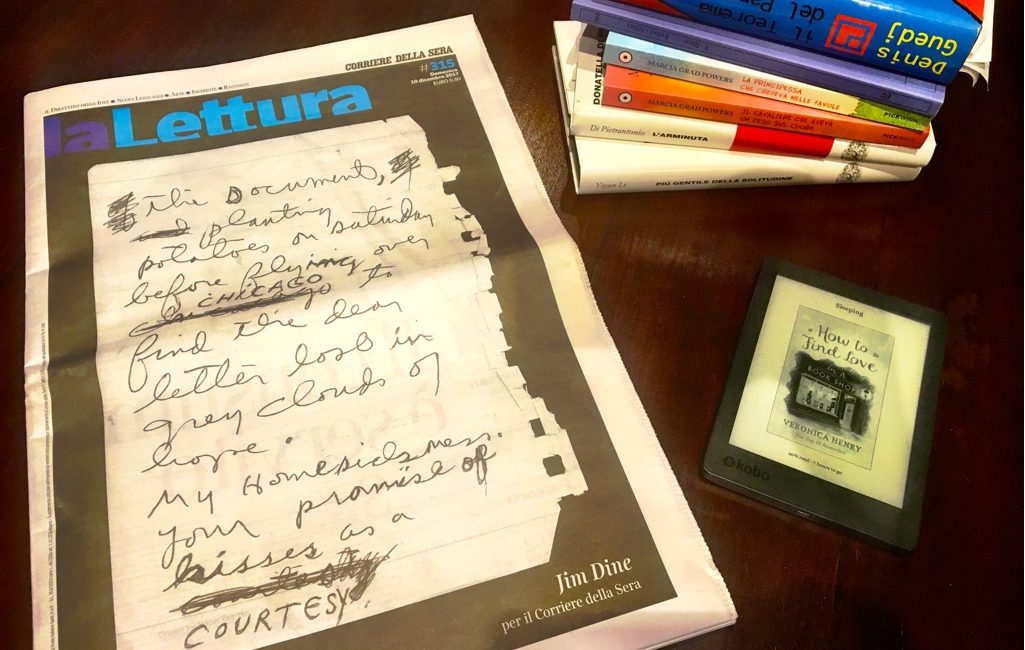 CORRIERE DELLA SERA
#315
Domenica
10 dicembre 2017
EURO 0,50
IL DIBATTITO DELLE IDEE • NUOVI LINGUAGGI • ARTE • INCHIESTE • RACCONTI
laLettura
The Document,
planting
potatoes on saturday
before flying over
CHICAGO
go to
find the dear
letter lost in
grey clouds of
hope.
My Homesickness.
your promise of
kisses as a
COURTESY.
Jim Dine
per il Corriere della Sera
Denis
Guedj
il Teorema
del
MARCIA GRAD POWERS
LA PRINCIPESSA
CHE CREDEVA NELLE FAVOLE
PICKWICK
DONATELLA
MARCIA GRAD POWERS
IL CAVALIERE CHE AVEVA
UN PESO SUL CUORE
PICKWICK
Di Pietrantonio L'ARMINUTA
Yiyun Li PIÙ GENTILE DELLA SOLITUDINE
Sleeping
How to
Find Love
in a
BOOK SHOP
VERONICA HENRY
The Top 10 bestseller
kobo